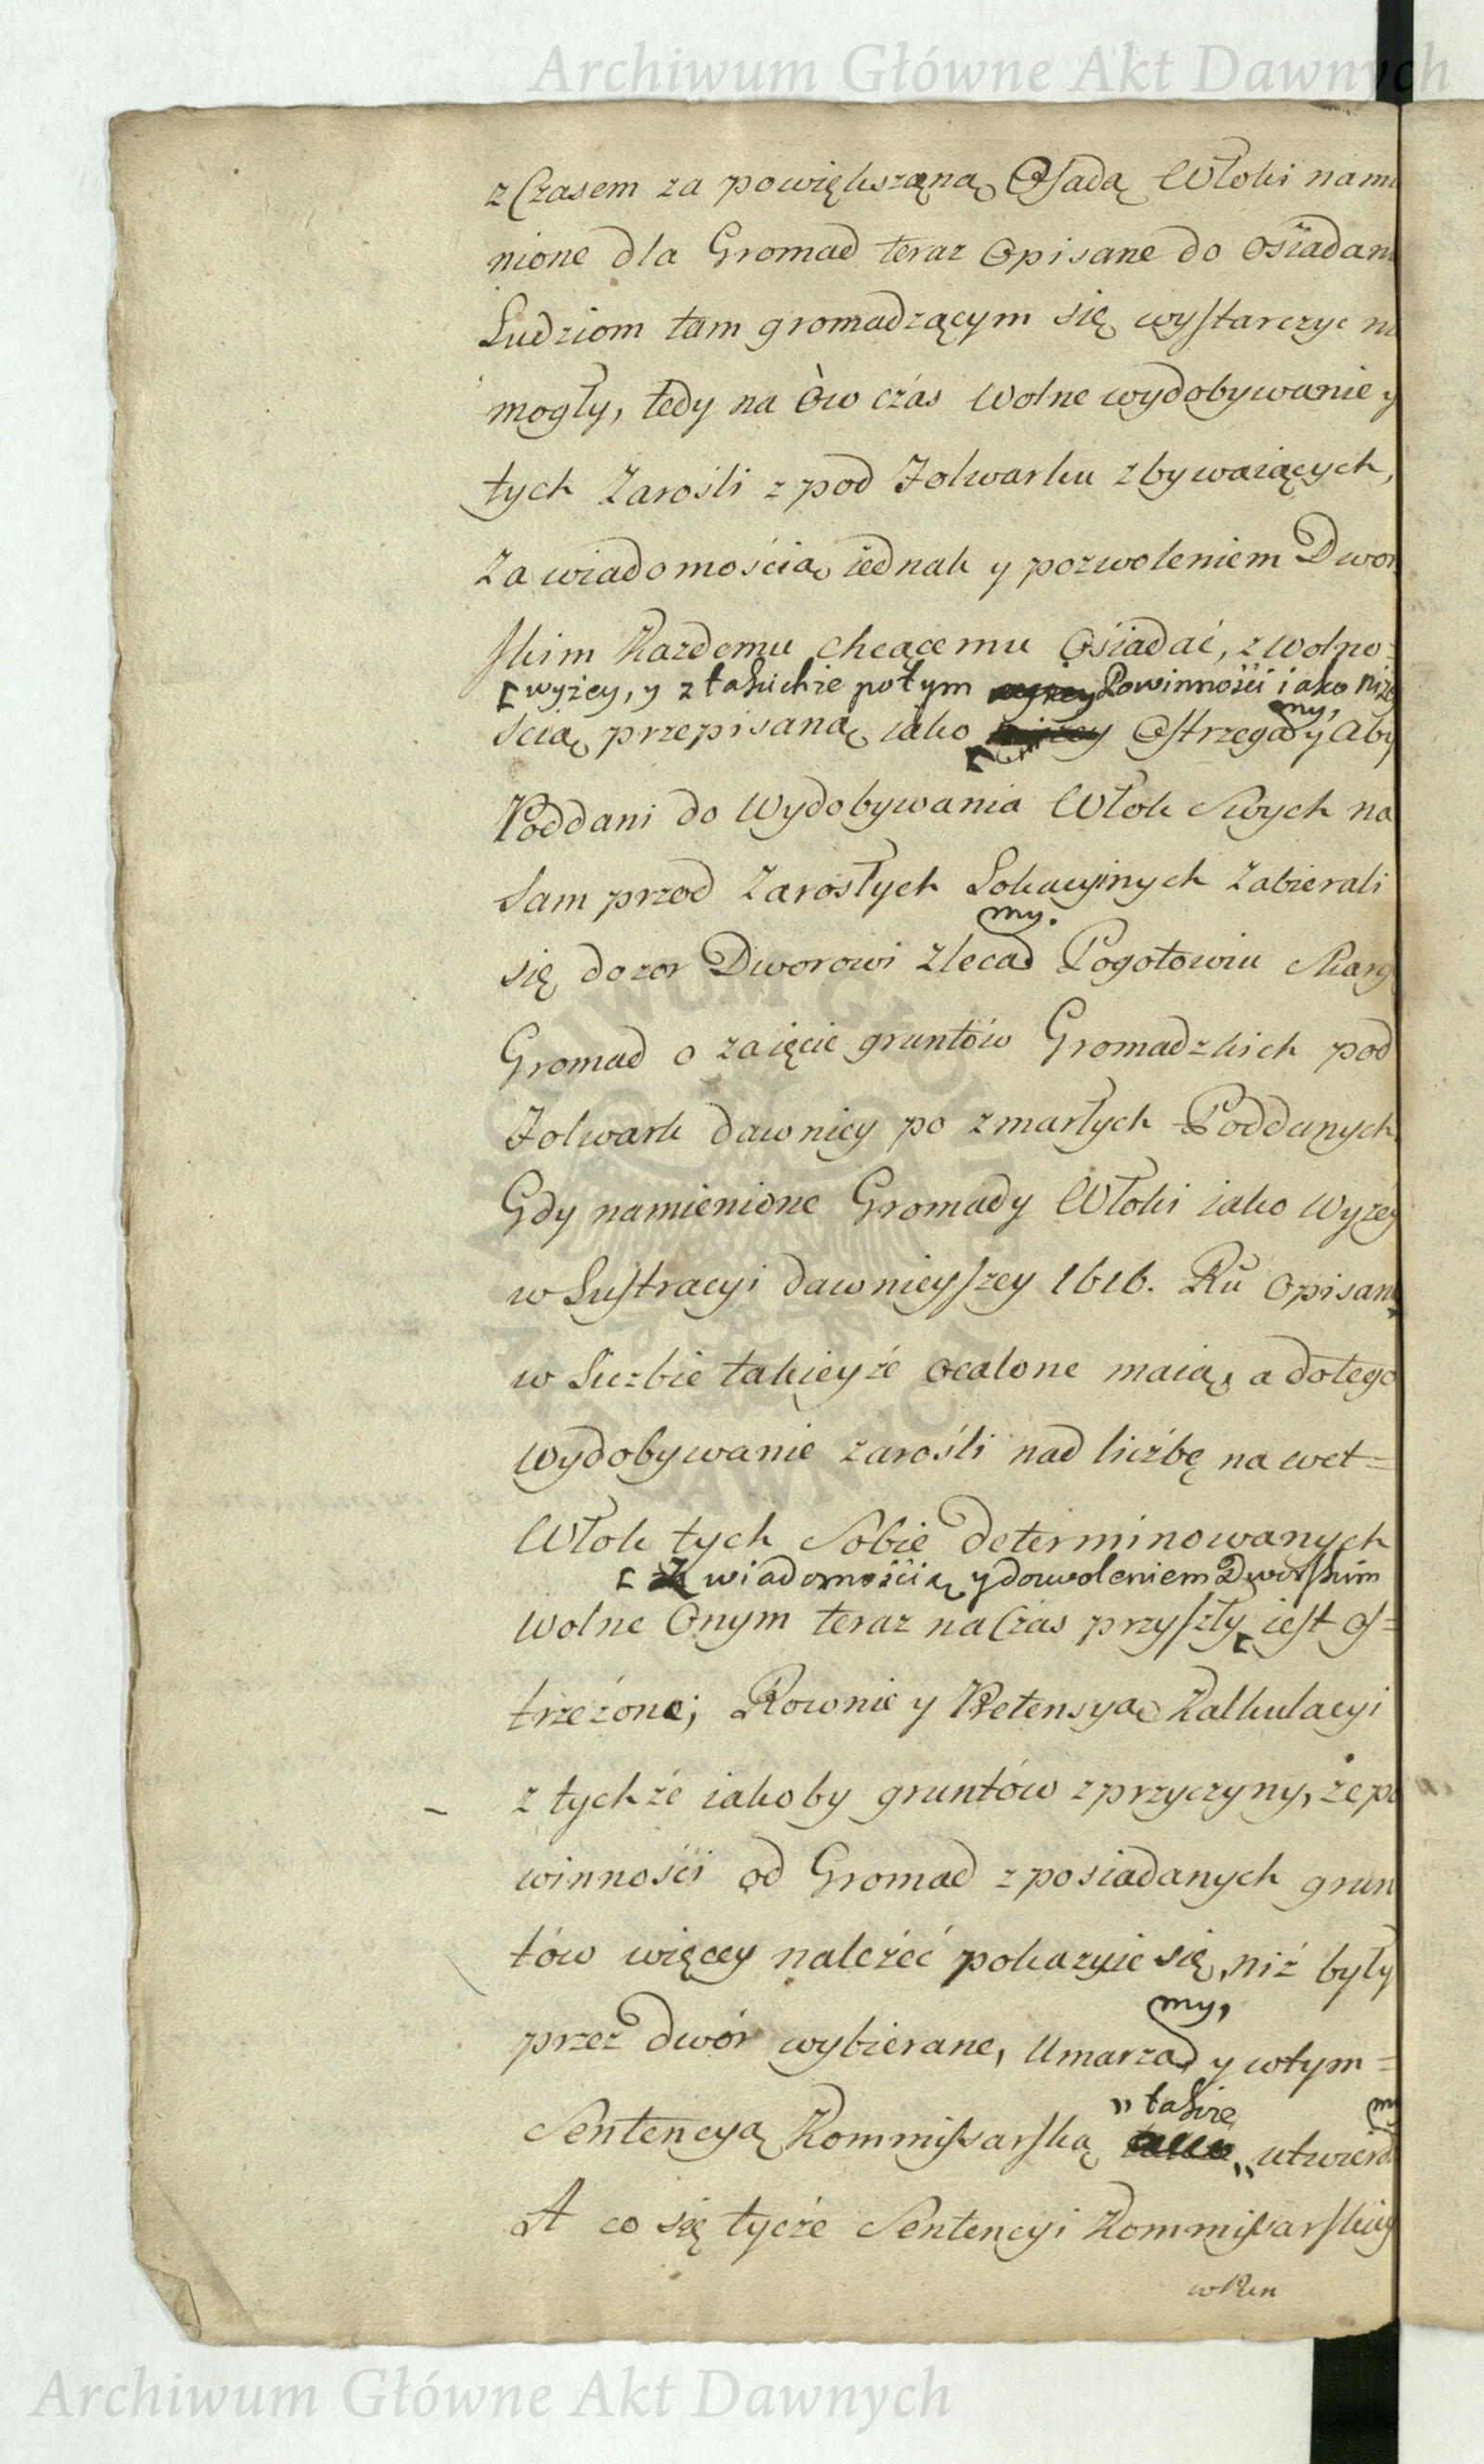 Archiwum Główne Akt Dawnych
z Czasem za powiększaną Osadą Włoki nami
nione dla Gromad teraz Opisane do osiadani
Ludziom tam gromadzącym się wystarczyc ni
mogły, tedy na Ow czas Wolne wydobywanie y
tych Zarośli z pod Folwarku zbywaiących,
Za wiadomością iednak y pozwoleniem Dwor
skim Kazdemu chcącemu Osiadać, z wolno=
wyżey, y z takichże potym Powinności iako niże
ścią przepisaną iako Ostrzegamy, Aby
Poddani do Wydobywania Włok Swych na
Sam przod Zarosłych Lokacyinych Zabierali
się dozor Dworowi Zlecamy. Pogotowiu Skarg
Gromad o zaięcie gruntów Gromadzkich pod
Folwark dawniey po zmarłych Poddanych
Gdy namienione Gromady Włoki iako Wyzey
w Lustracyi dawnieyszey 1616. Ru Opisane
w Liczbie takieyże ocalone maią, a dotego
wydobywanie zarośli nad liczbę nawet=
Włok tych Sobie determinowanych
wiadomością y dozwoleniem Dworskim
Wolne Onym teraz na Czas przyszły iest os=
trzeżone; Rownie y Pretensyą Kalkulacyi
z tychże iakoby gruntów z przyczyny, że po
winności od Gromad z posiadanych grun
tów więcey należeć pokazuie się, niż były
przez dwór wybierane, Umarzamy, y wtym=
Sentencyą Kommissarską takze utwierdzamy
A co się tycze Sentencyi Kommissarskiey
w Pun
Archiwum Główne Akt Dawnych